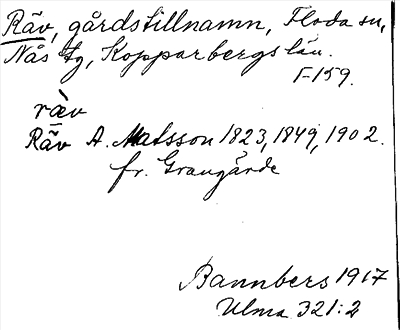 Räv, gårdstillnamn, Floda sn,
Nås tg, Kopparbergs län.
F 159.
räv
Räv A. Matsson 1823, 1849, 1902.
fr. Grangärde
Bannbers 1917
Ulma 321:2